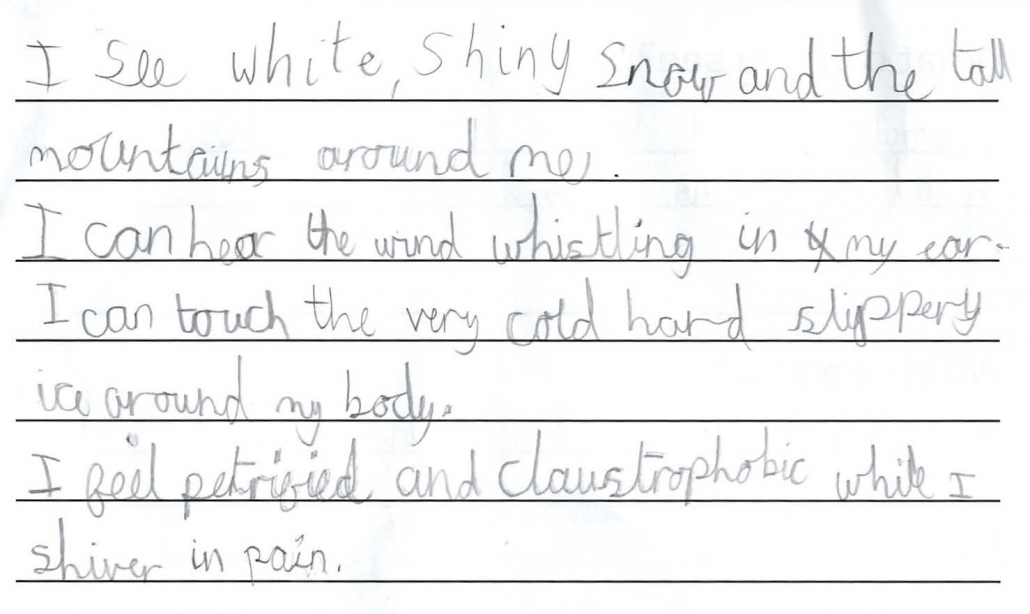 I See white, Shiny Snow and the tall
mountains around me,.
I can hear the wind whistling in my ear.
I can touch the very cold hard slippery
ice around my body.
I feel petrified and Claustrophobic while I
shiver in pain.